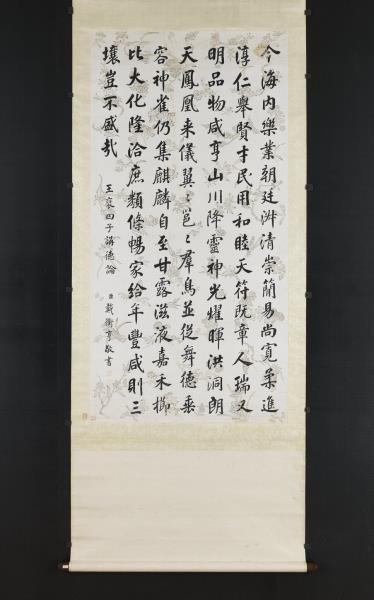 今海内樂業朝廷淑清崇簡易尚寬柔進
淳仁舉賢才民用和睦天符既章人瑞又
明品物咸亨山川降靈神光燿暉洪洞朗
天鳳凰来儀翼〻邕〻羣鳥並從舞德垂
容神雀仍集麒麟自至甘露滋液嘉禾櫛
比大化隆洽庶類條暢家給年豐咸則三
壤豈不盛哉
王襃四子講德論
臣戴衢亨敬書